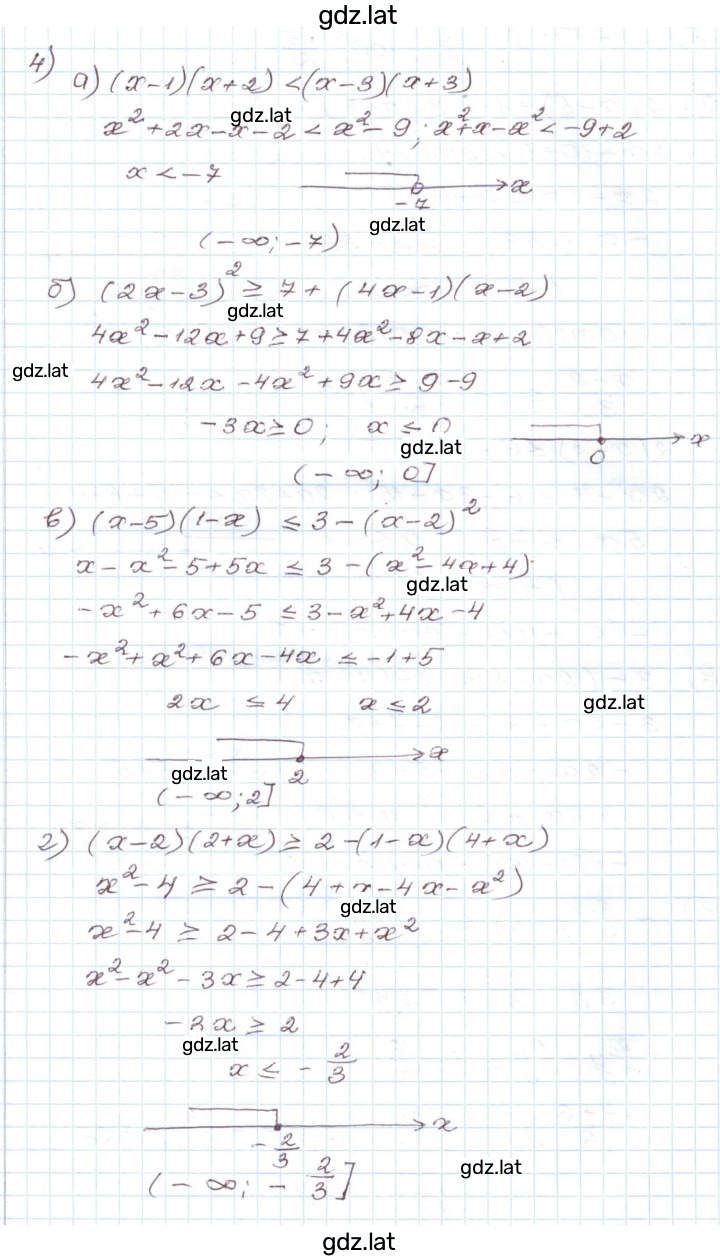 gdz.lat
4) а) (x-1)(x+2) <(x-3)(x+3)
gdz.lat
x²+2x-x-2 < x²-9; x²+x-x²<-9+2
x < -7
x
-7
gdz.lat
(-∞; -7)
б) (2x-3)² ≥ 7 + (4x-1)(x-2)
gdz.lat
4x²-12x+9≥7+4x²-8x-x+2
gdz.lat
4x²-12x-4x²+9x≥ 9-9
-3x≥0; x ≤ 0
x
0
gdz.lat
(-∞; 0]
в) (x-5)(1-x) ≤ 3-(x-2)²
x-x²-5+5x ≤ 3-(x²-4x+4)
gdz.lat
-x²+6x-5 ≤ 3-x²+4x-4
-x²+x²+6x-4x ≤ -1+5
2x ≤ 4 x ≤ 2
gdz.lat
x
gdz.lat
2
(-∞; 2]
г) (x-2)(2+x) ≥ 2-(1-x)(4+x)
x²-4 ≥ 2-(4+x-4x-x²)
gdz.lat
x²-4 ≥ 2-4+3x+x²
x²-x²-3x≥2-4+4
-3x ≥ 2
gdz.lat
x ≤ -2/3
x
-2/3
gdz.lat
(-∞; -2/3]
gdz.lat